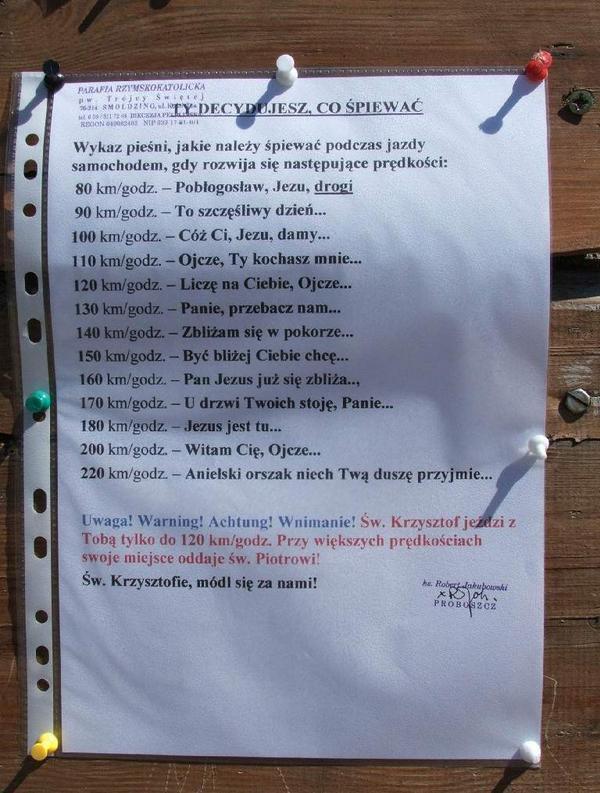 PARAFIA RZYMSKOKATOLICKA
p w . Trójcy Świętej
76-214 SMOŁDZINO, ul.
TY DECYDUJESZ, CO ŚPIEWAĆ
Wykaz pieśni, jakie należy śpiewać podczas jazdy
samochodem, gdy rozwija się następujące prędkości:
80 km/godz. – Pobłogosław, Jezu, drogi
90 km/godz. – To szczęśliwy dzień...
100 km/godz. – Cóż Ci, Jezu, damy...
110 km/godz. – Ojcze, Ty kochasz mnie...
120 km/godz. – Liczę na Ciebie, Ojcze...
130 km/godz. – Panie, przebacz nam...
140 km/godz. – Zbliżam się w pokorze...
150 km/godz. – Być bliżej Ciebie chcę...
160 km/godz. – Pan Jezus już się zbliża..,
170 km/godz. – U drzwi Twoich stoję, Panie...
180 km/godz. – Jezus jest tu...
200 km/godz. – Witam Cię, Ojcze...
220 km/godz. – Anielski orszak niech Twą duszę przyjmie...
Uwaga! Warning! Achtung! Wnimanie! Św. Krzysztof jeździ z
Tobą tylko do 120 km/godz. Przy większych prędkościach
swoje miejsce oddaje św. Piotrowi!
Św. Krzysztofie, módl się za nami!
ks. Robert Jakubowski
PROBOSZCZ